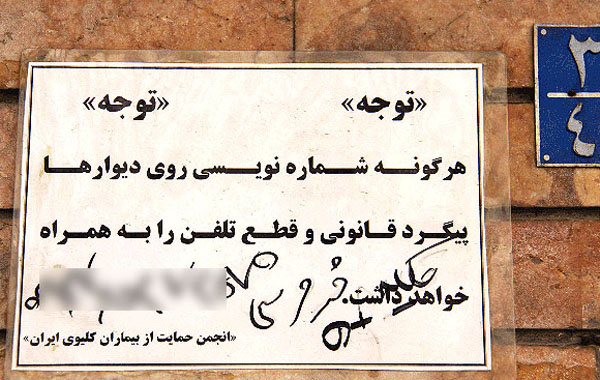 «توجه» «توجه»
هرگونه شماره نویسی روی دیوارها
پیگرد قانونی و قطع تلفن را به همراه
خواهد داشت.
فروشی
«انجمن حمایت از بیماران کلیوی ایران»
۳
۴